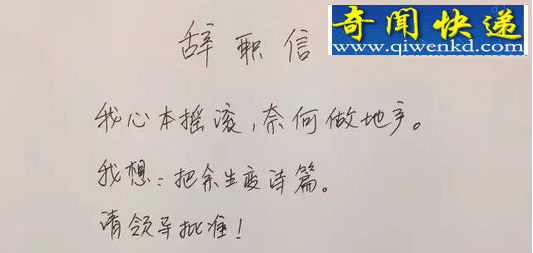 奇闻快递
www.qiwenkd.com
辞职信
我心本摇滚，奈何做地产。
我想：把余生变诗篇。
请领导批准！